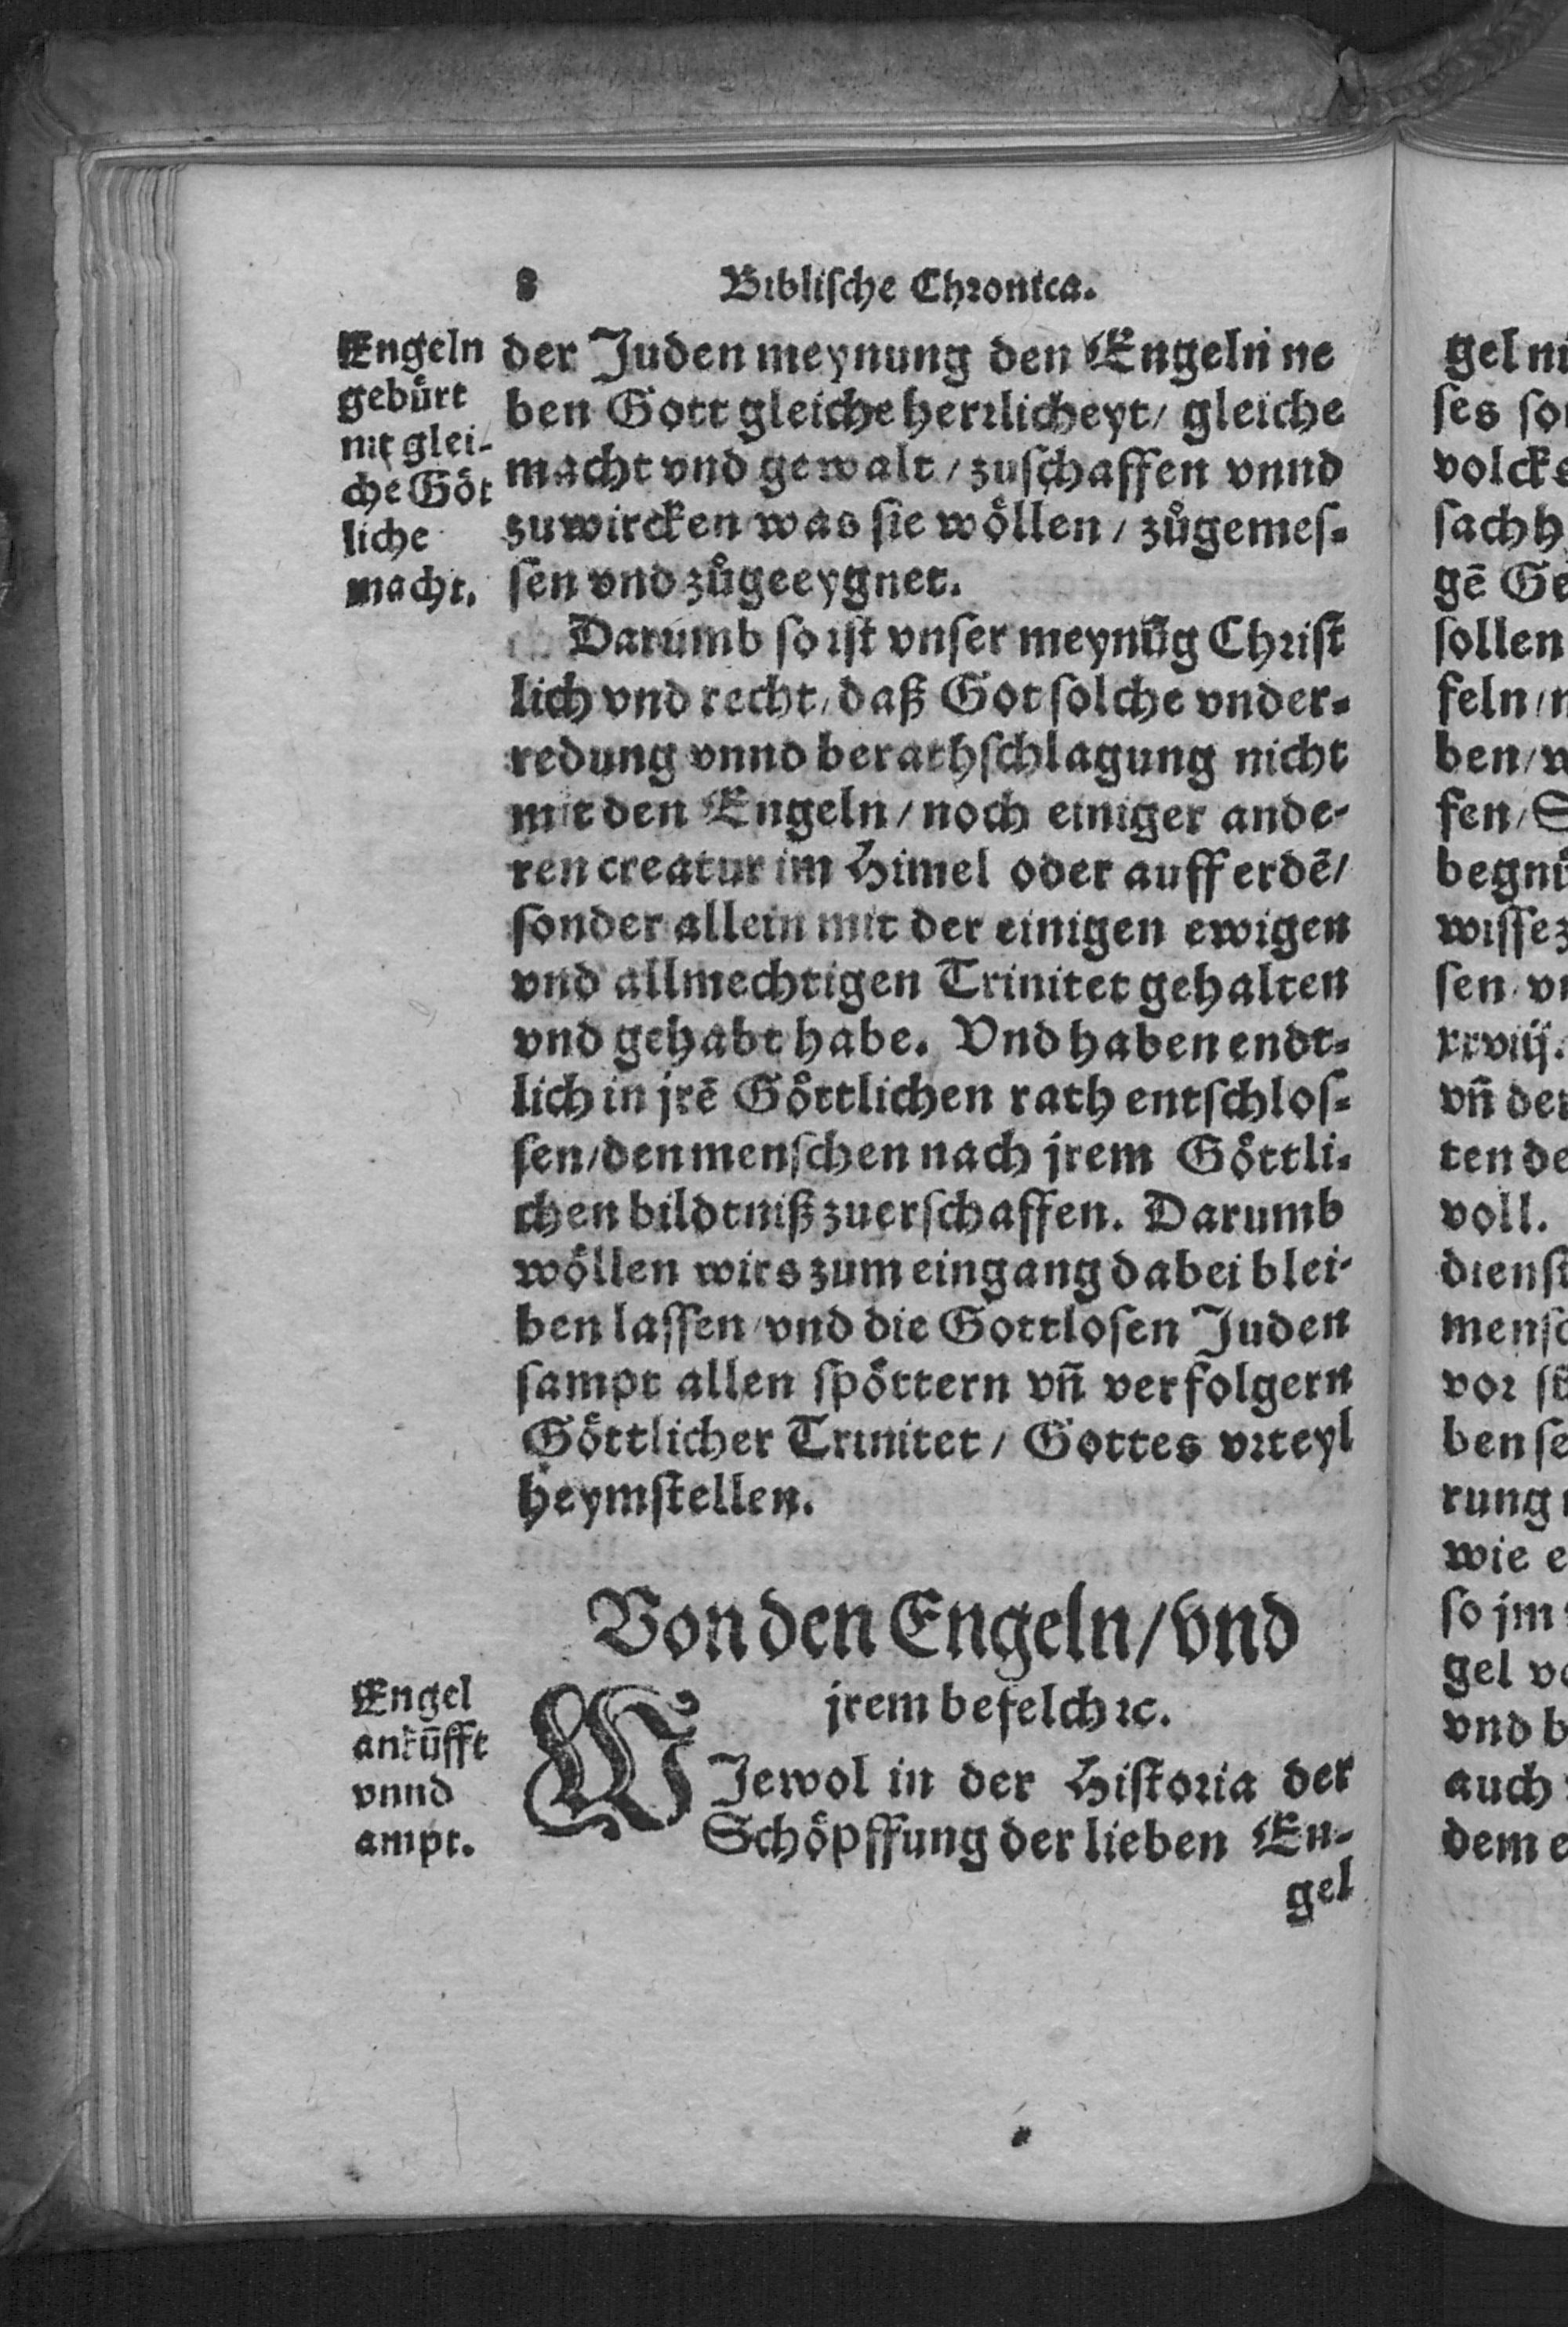 8 Biblische Chronica.
Engeln
gebürt
nit glei-
che Göt
liche
macht.
der Juden meynung den Engeln ne
ben Gott gleiche herrlicheyt/ gleiche
macht vnd gewalt/ zuschaffen vnnd
zuwircken was sie wöllen/ zůgemes-
sen vnd zůgeeygnet.
Darumb so ist vnser meynūg Christ
lich vnd recht/ daß Got solche vnder-
redung vnnd berathschlagung nicht
mit den Engeln/ noch einiger ande-
ren creatur im Himel oder auff erdē/
sonder allein mit der einigen ewigen
vnd allmechtigen Trinitet gehalten
vnd gehabt habe. Vnd haben endt-
lich in jrē Göttlichen rath entschlos-
sen/ den menschen nach jrem Göttli-
chen bildtniß zuerschaffen. Darumb
wöllen wirs zum eingang dabei blei-
ben lassen/ vnd die Gottlosen Juden
sampt allen spöttern vn̄ verfolgern
Göttlicher Trinitet/ Gottes vrteyl
heymstellen.
Von den Engeln/ vnd
jrem befelch ꝛc.
Engel
ankūfft
vnnd
ampt.
WJewol in der Historia der
Schöpffung der lieben En-
gel
gel
ses
volcks
sach
gē
sollen
feln/
ben/
fen/
wisse
sen
xxviij.
vn̄ der
ten
voll.
dienst
mensc
vor
ben
rung
wie
so jm
gel
vnd
auch
dem